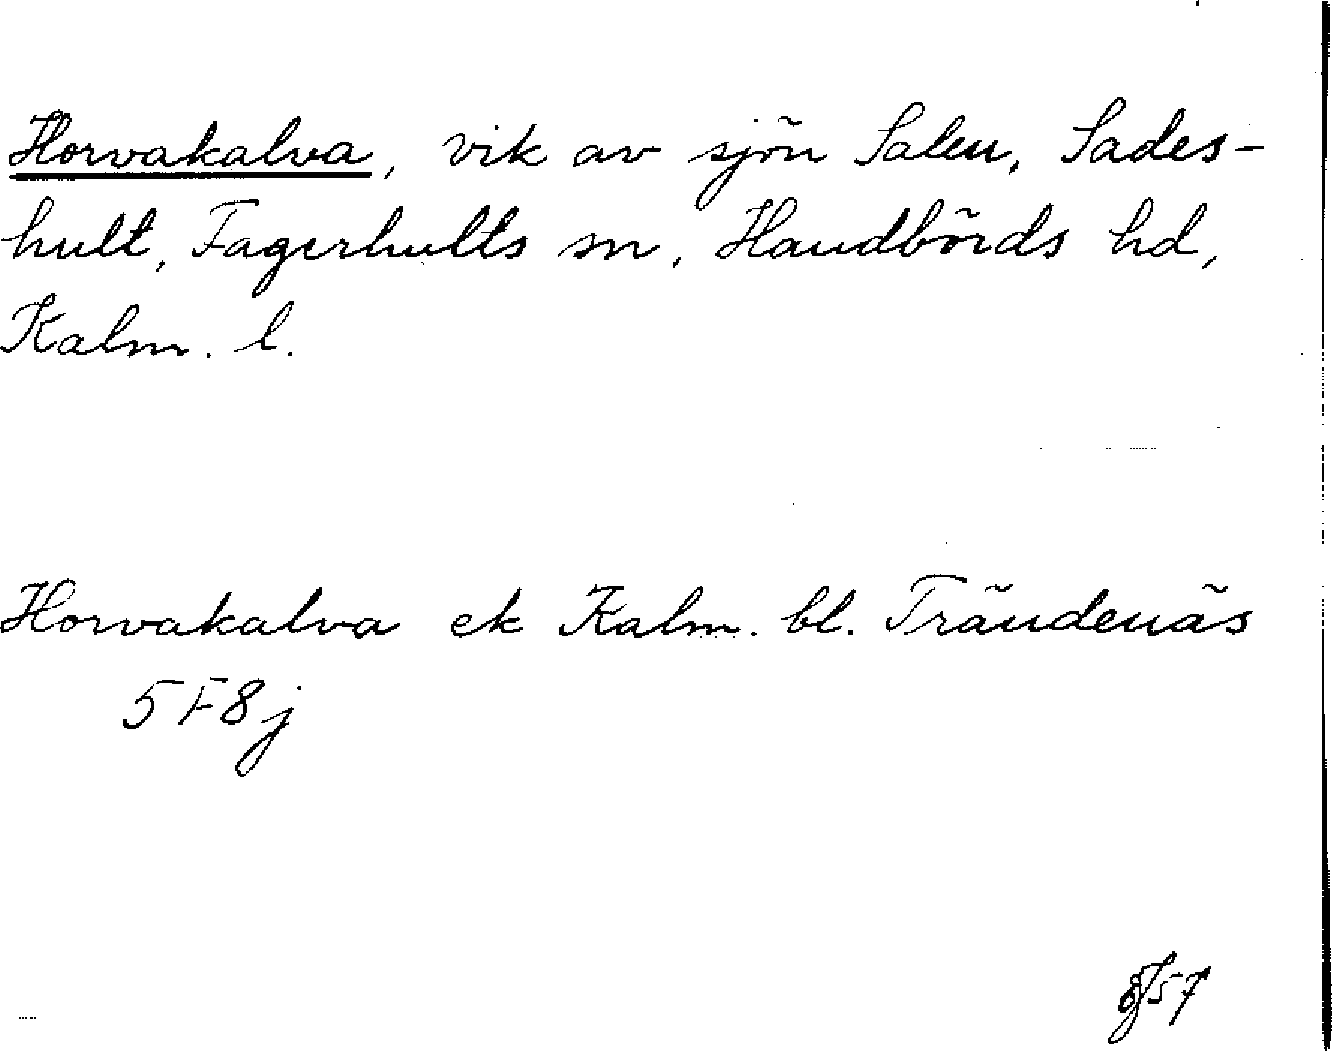 Horvakalva, vik av sjön Salen, Sades-
hult, Fagerhults sn, Handbörds hd,
Kalm. l.
Horvakalva ek Kalm. bl. Trändenäs
5F8j